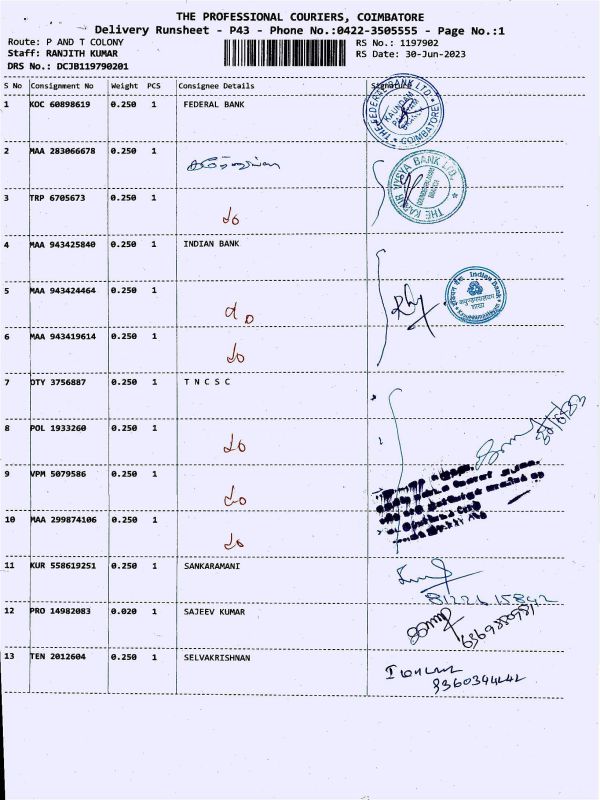 THE PROFESSIONAL COURIERS, COIMBATORE
Delivery Runsheet - P43 - Phone No.:0422-3505555 - Page No.:1
Route: P AND T COLONY RS No.: 1197902
Staff: RANJITH KUMAR RS Date: 30-Jun-2023
DRS No.: DCJB119790201
S No Consignment No Weight PCS Consignee Details Signature
1 KOC 60898619 0.250 1 FEDERAL BANK
THE FEDERAL BANK LTD. COIMBATORE
2 MAA 283066678 0.250 1
THE KARUR VYSYA BANK LTD.
3 TRP 6705673 0.250 1 do
4 MAA 943425840 0.250 1 INDIAN BANK
Indian Bank
5 MAA 943424464 0.250 1 do
6 MAA 943419614 0.250 1 do
7 OTY 3756887 0.250 1 T N C S C
30/6/23
8 POL 1933260 0.250 1 do
9 VPM 5079586 0.250 1 do
10 MAA 299874106 0.250 1 do
11 KUR 558619251 0.250 1 SANKARAMANI
12 PRO 14982083 0.020 1 SAJEEV KUMAR
13 TEN 2012604 0.250 1 SELVAKRISHNAN